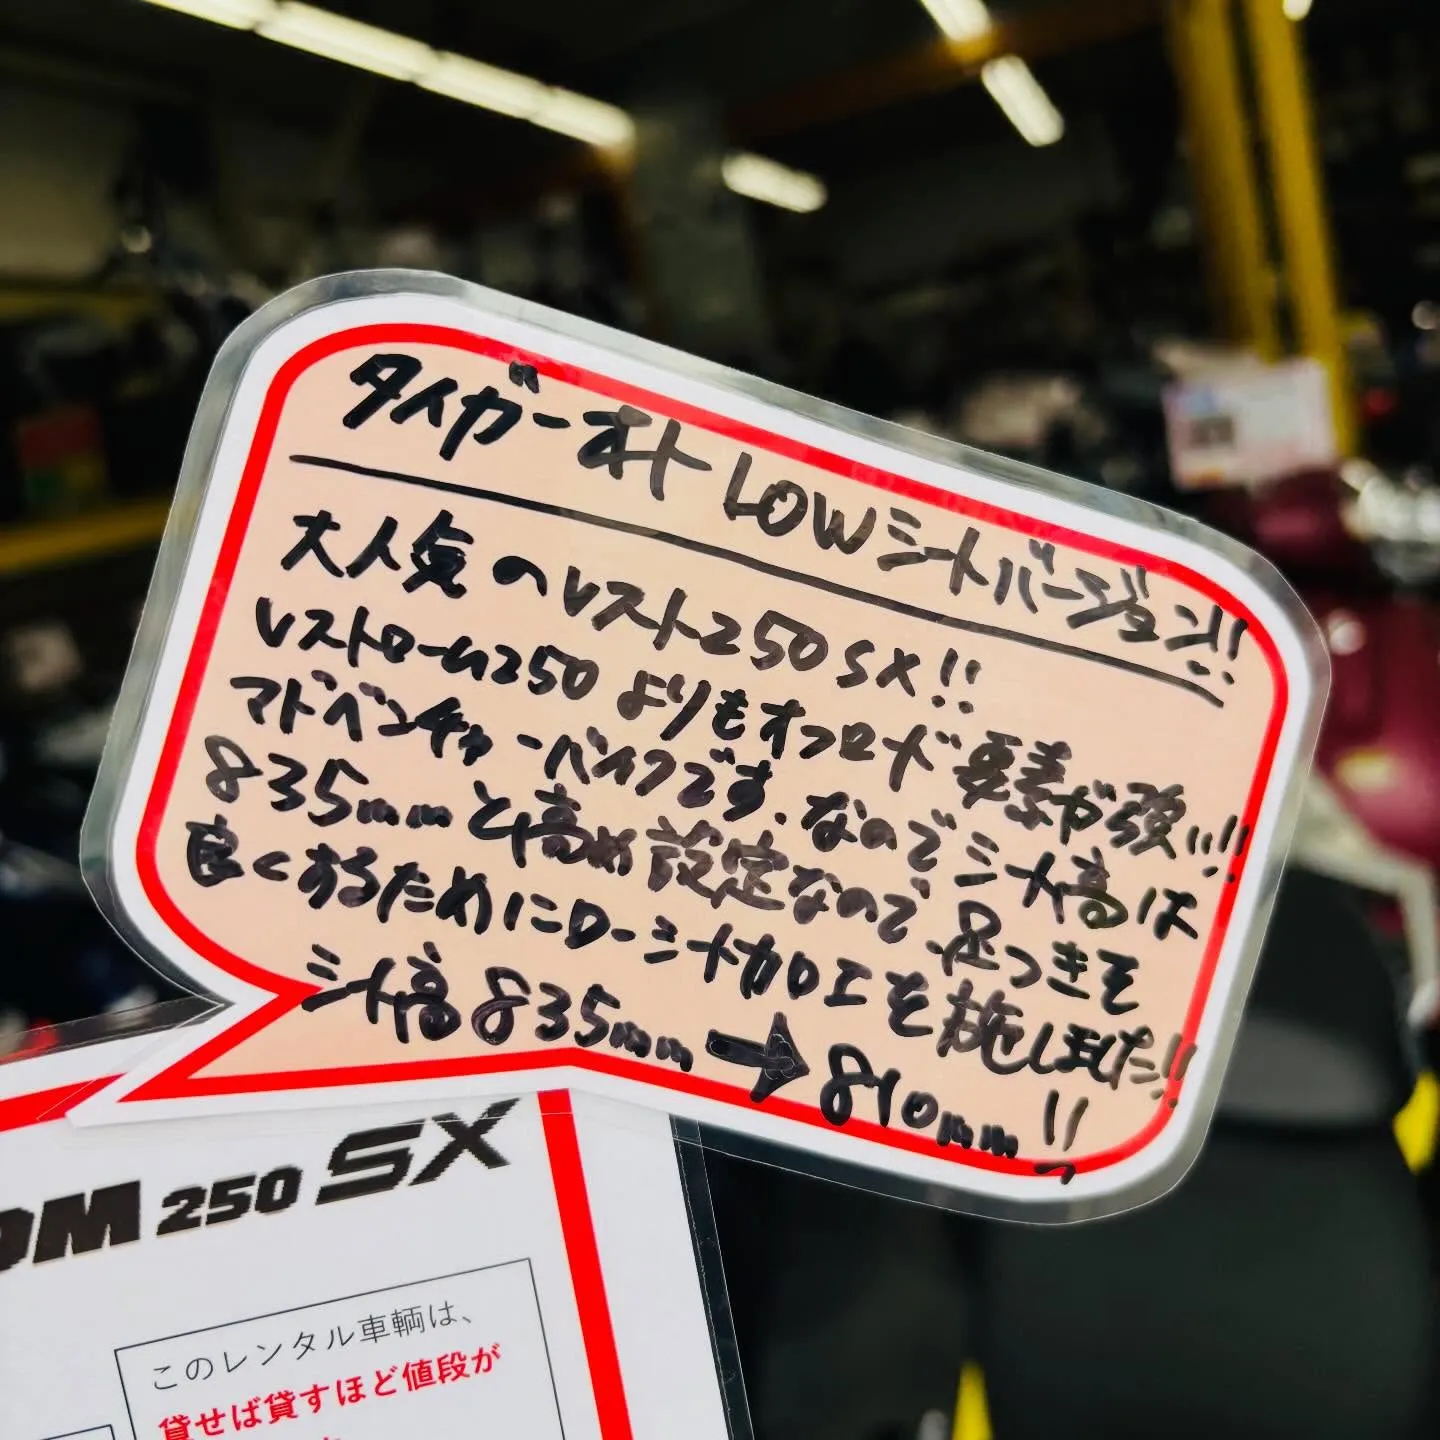 タイガーオートLOWシートバージョン!!
大人気のVストト250SX!!
Vストローム250よりもオフロード要素が強い!!
アドベンチャーバイクです.なのでシート高は
835mmと高め設定なので足つきを
良くするためにローシート加工を施しました!!
シート高835mm→810mm!!
OM 250 SX
このレンタル車輌は、
貸せば貸すほど値段が